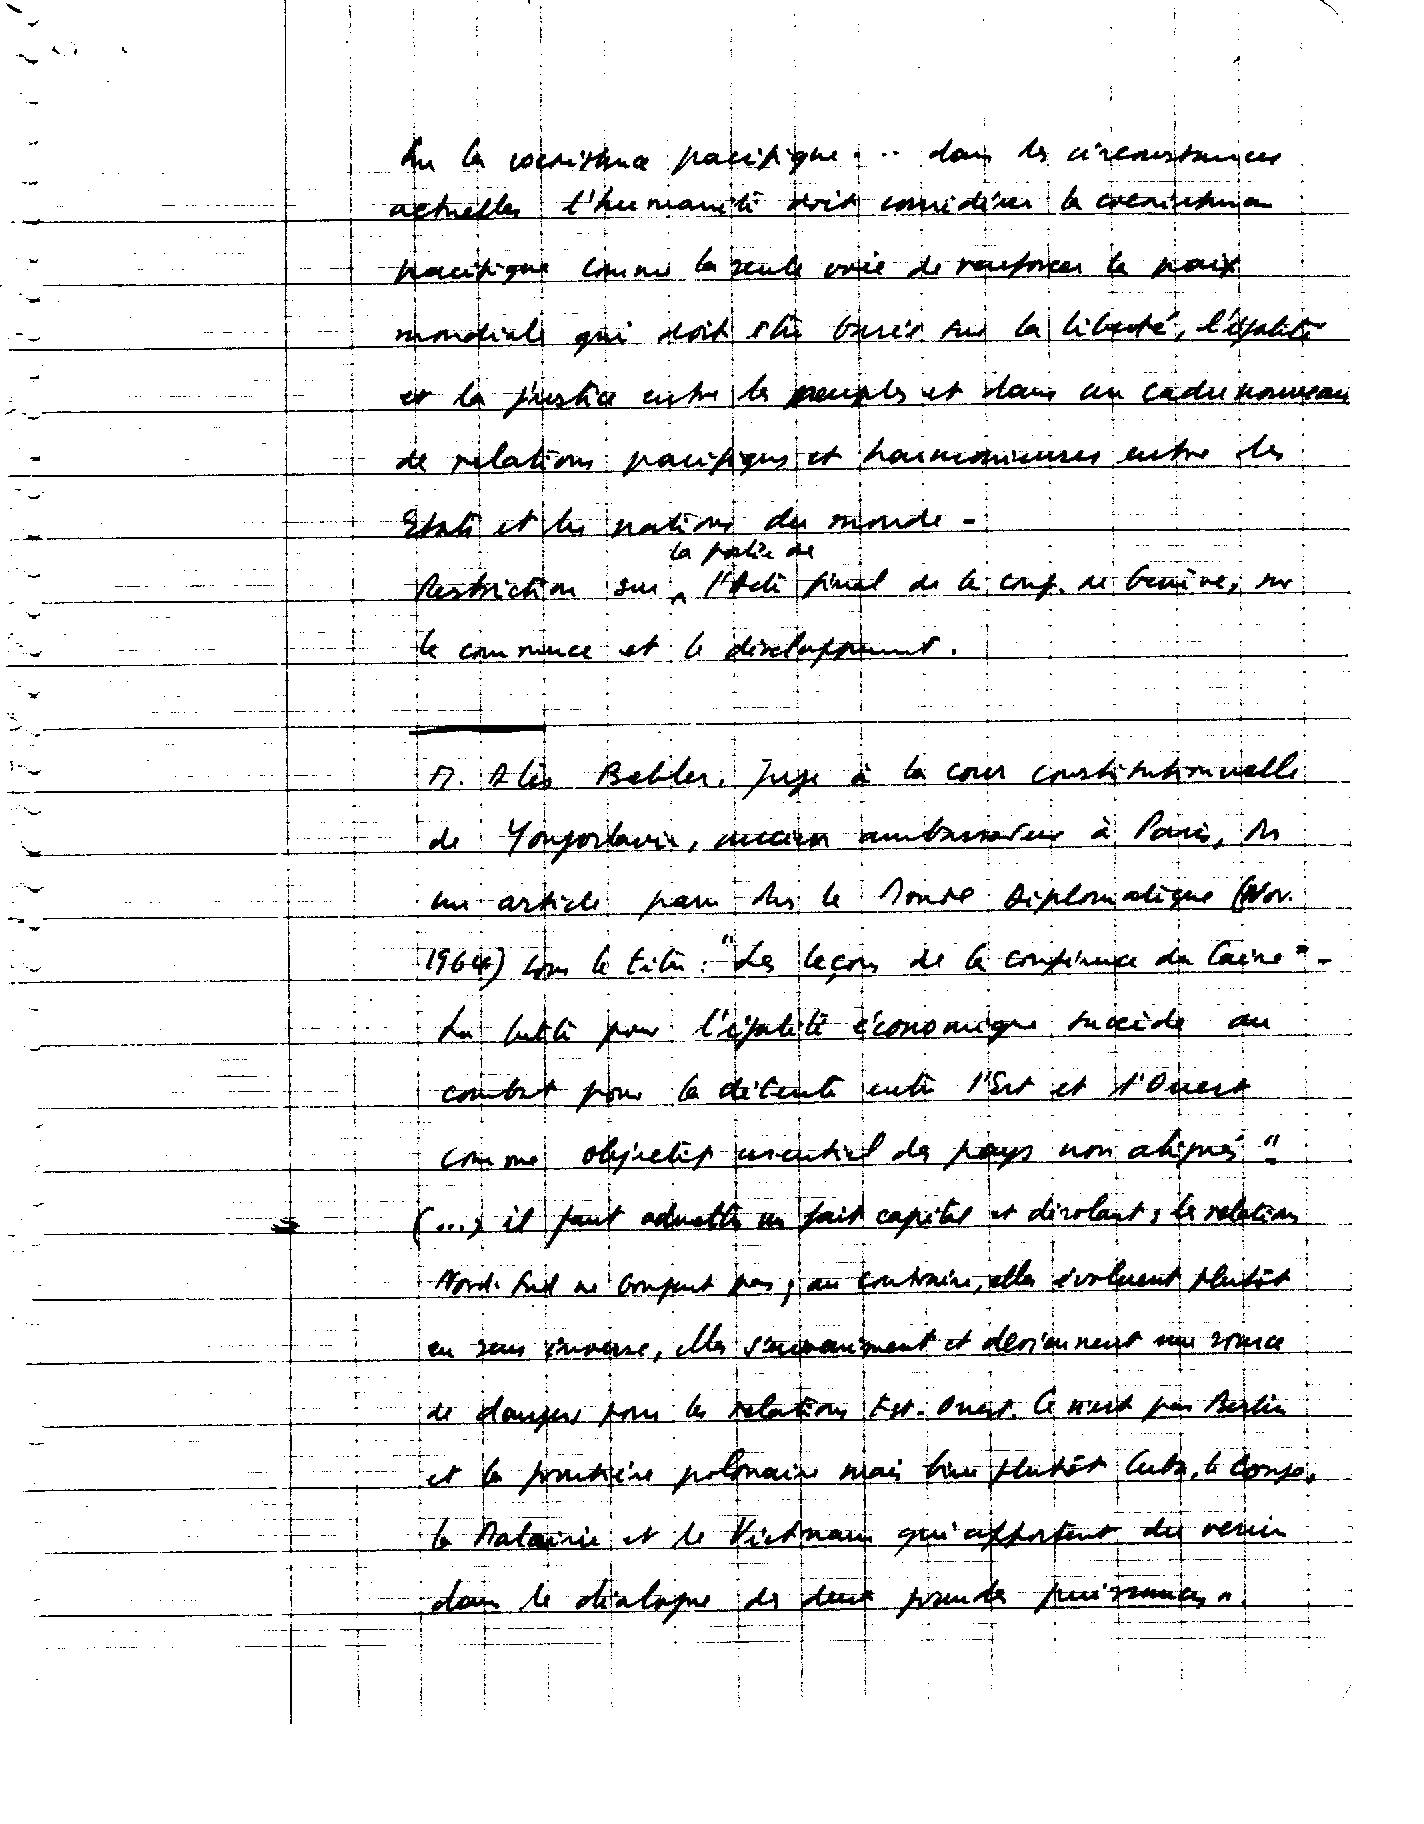 Sur la coexistence pacifique... dans les circonstances
actuelles l'humanité doit considérer la coexistence
pacifique comme la seule voie de renforcer la paix
mondiale qui doit être basée sur la liberté, l'égalité
et la justice entre les peuples et dans un cadre nouveau
de relations pacifiques et harmonieuses entre les
Etats et les nations du monde -
la portée de
Restriction sur ^ l'Acte final de la conf. de Genève, sur
le commerce et le développement.
M. Alès Bebler. Juge à la cour constitutionnelle
de Yougoslavie, ancien ambassadeur à Paris, ds
un article paru ds le Monde Diplomatique (Nov.
1964) sous le titre : "Les leçons de la conférence du Caire" -
La lutte pour l'égalité économique succède au
combat pour la détente entre l'Est et l'Ouest
comme objectif essentiel des pays non alignés"
(...) il faut admettre un fait capital et désolant ; les relations
Nord-Sud ne comptent pas ; au contraire, elles évoluent plutôt
en sens inverse, elles s'enveniment et deviennent une source
de dangers pour les relations Est-Ouest. Ce n'est pas Berlin
et la frontière polonaise mais bien plutôt Cuba, le Congo,
la Malaisie et le Vietnam qui apportent du venin
dans le dialogue des deux grandes puissances".